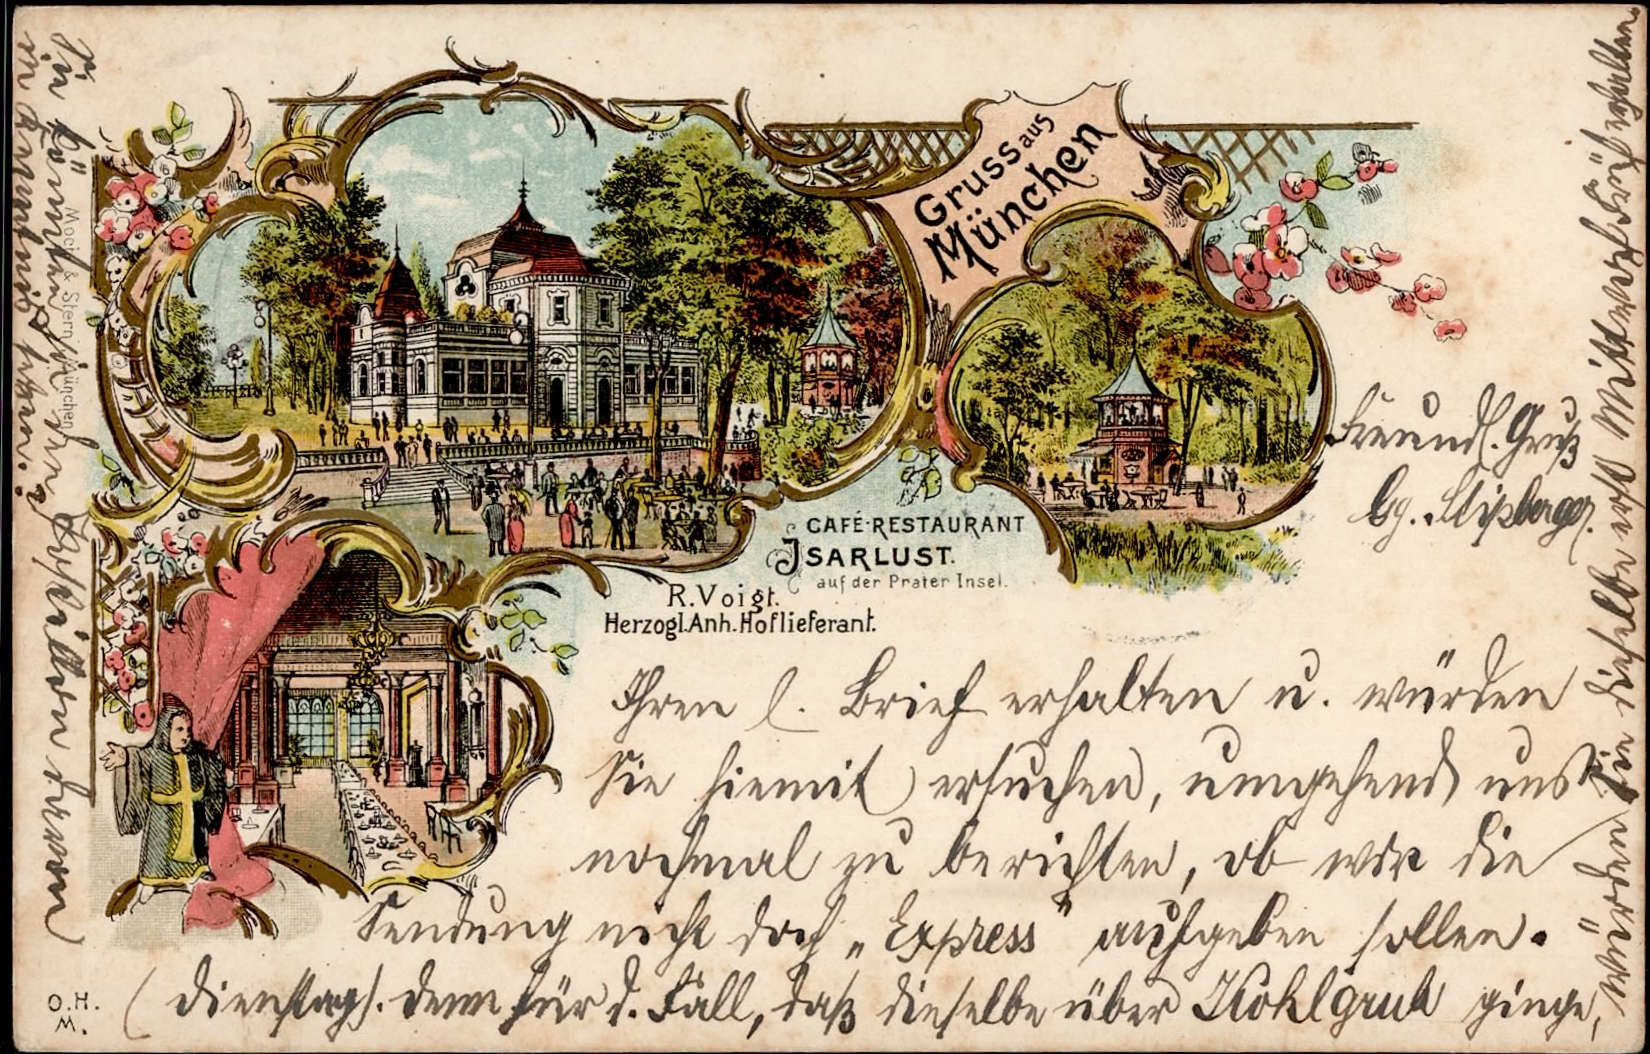 Gruss aus
München
CAFÉ-RESTAURANT
ISARLUST.
auf der Prater Insel.
R. Voigt.
Herzogl. Anh. Hoflieferant.
Mock & Stern, München
O. H.
M.
Freundl. Gruß
Gg.
Ihren l. Brief erhalten u. würden
Sie hiemit ersuchen, umgehend uns
nochmal zu berichten, ob wir die
Sendung nicht doch „Express" aufgeben sollen.
(Dienstag). denn für d. Fall, daß dieselbe über Kohlgrub ginge,
würden Sie dieselbe erst Mittwoch früh erhalten.
Sie könnten die
in